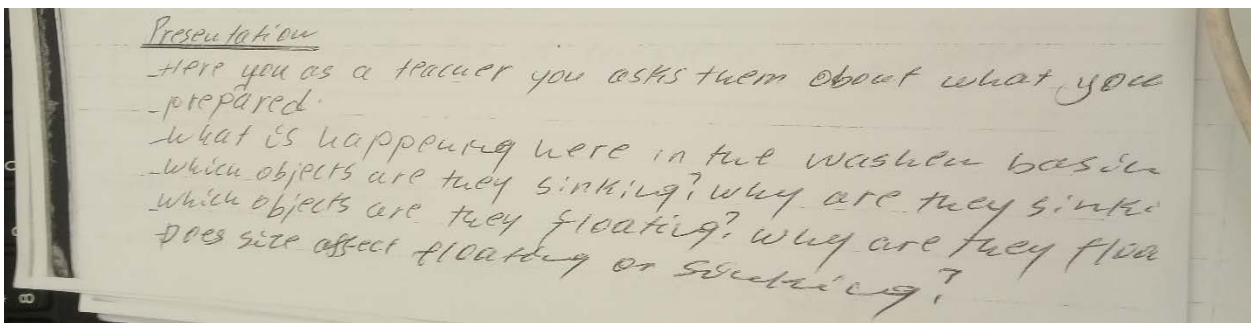 Presentation
-Here you as a teacher you asks them about what you
-prepared.
-what is happening here in the washen basin
-which objects are they sinking? why are they sinki
-which objects are they floating? why are they floa
Does size affect floating or sinking?